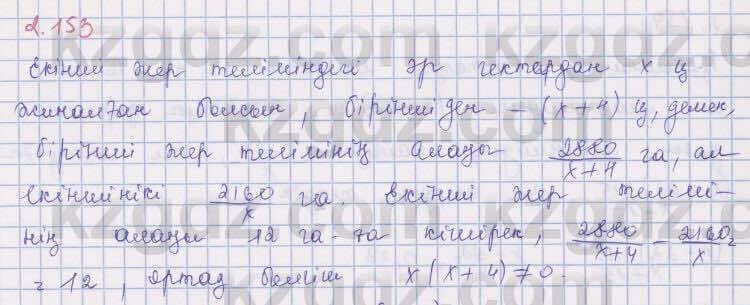 2.153
Екінші жер телімінде‌гі әр гектардан x ц
жиналған болсын, біріншіден - (x+4) ц, демек,
бірінші жер телімінің ауданы 2880/(x+4) га, ал
екіншінікі 2160/x га. Екінші жер телімі-
нің ауданы 12 га-ға кішірек, 2880/(x+4) - 2160/x =
= 12, ортақ бөлгіш x(x+4)≠0.